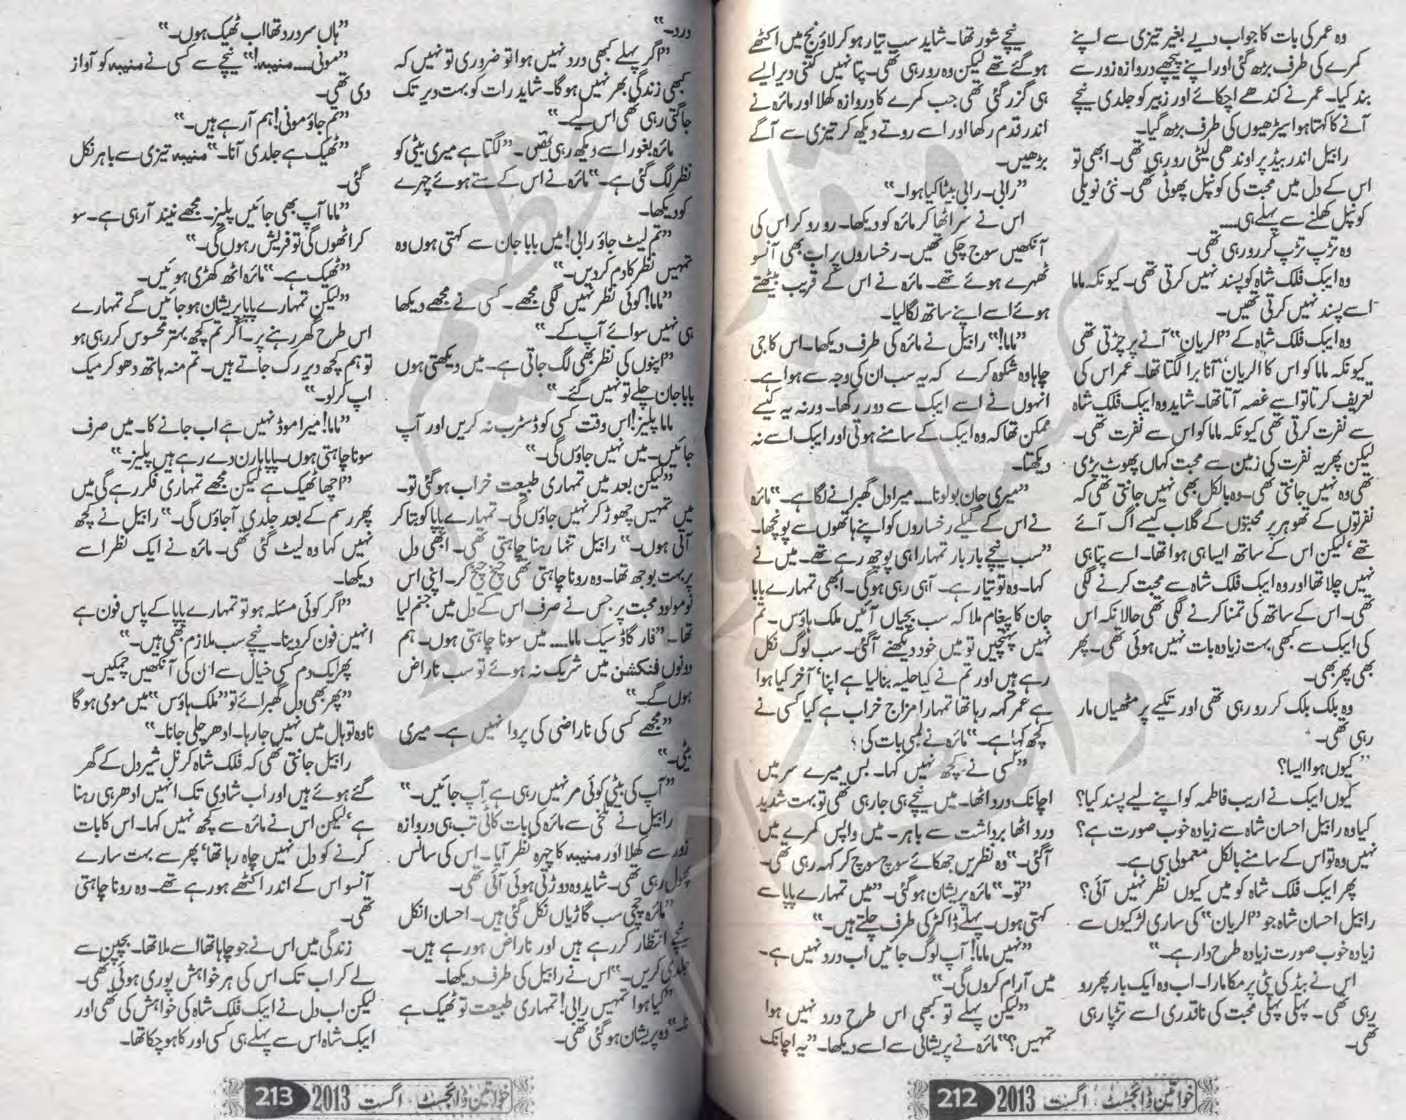 وہ عمر کی بات کا جواب دیے بغیر تیزی سے اپنے
کمرے کی طرف بڑھ گئی اور اپنے پیچھے دروازہ زور سے
بند کیا۔ عمر نے کندھے اچکائے اور زبیر کو جلدی نیچے
آنے کا کہتا ہوا سیڑھیوں کی طرف بڑھ گیا۔
رابیل اندر بیڈ پر اوندھی لیٹی رو رہی تھی۔ ابھی تو
اس کے دل میں محبت کی کونپل پھوٹی تھی۔ نئی نویلی
کونپل کھلنے سے پہلے ہی....
وہ تڑپ تڑپ کر رو رہی تھی۔
وہ ایبک فلک شاہ کو پسند نہیں کرتی تھی۔ کیونکہ ماما
اسے پسند نہیں کرتی تھیں۔
وہ ایبک فلک شاہ کے ”الریان“ آنے پر چڑتی تھی
کیونکہ ماما کو اس کا الریان‘ آنا برا لگتا تھا۔ عمر اس کی
تعریف کرتا تو اسے غصہ آتا تھا۔ شاید وہ ایبک فلک شاہ
سے نفرت کرتی تھی کیونکہ ماما کو اس سے نفرت تھی۔
لیکن پھر یہ نفرت کی زمین سے محبت کہاں پھوٹ پڑی
تھی وہ نہیں جانتی تھی۔ وہ بالکل بھی نہیں جانتی تھی کہ
نفرتوں کے تھوہر پر محبتوں کے گلاب کیسے اگ آئے
تھے‘ لیکن اس کے ساتھ ایسا ہی ہوا تھا۔ اسے پتا ہی
نہیں چلا تھا اور وہ ایبک فلک شاہ سے محبت کرنے لگی
تھی۔ اس کے ساتھ کی تمنا کرنے لگی تھی حالانکہ اس
کی ایبک سے کبھی بہت زیادہ بات نہیں ہوئی تھی۔ پھر
بھی پھر بھی۔
وہ بلک بلک کر رو رہی تھی اور تکیے پر مٹھیاں مار
رہی تھی۔
”کیوں ہوا ایسا؟
کیوں ایبک نے اریب فاطمہ کو اپنے لیے پسند کیا؟
کیا وہ رابیل احسان شاہ سے زیادہ خوب صورت ہے؟
نہیں وہ تو اس کے سامنے بالکل معمولی سی ہے۔
پھر ایبک فلک شاہ کو میں کیوں نظر نہیں آئی؟
رابیل احسان شاہ جو ”الریان“ کی ساری لڑکیوں سے
زیادہ خوب صورت زیادہ طرح دار ہے۔“
اس نے بیڈ کی پٹی پر مکا مارا۔ اب وہ ایک بار پھر رو
رہی تھی۔ پہلی پہلی محبت کی ناقدری اسے تڑپا رہی
تھی۔
نیچے شور تھا۔ شاید سب تیار ہو کر لاؤنج میں اکٹھے
ہو گئے تھے لیکن وہ رو رہی تھی۔ پتا نہیں کتنی دیر ایسے
ہی گزر گئی تھی جب کمرے کا دروازہ کھلا اور مائرہ نے
اندر قدم رکھا اور اسے روتے دیکھ کر تیزی سے آگے
بڑھیں۔
”رابی۔ رابی بیٹا کیا ہوا۔“
اس نے سر اٹھا کر مائرہ کو دیکھا۔ رو رو کر اس کی
آنکھیں سوج چکی تھیں۔ رخساروں پر اب بھی آنسو
ٹھہرے ہوئے تھے۔ مائرہ نے اس کے قریب بیٹھتے
ہوئے اسے اپنے ساتھ لگالیا۔
”ماما!“ رابیل نے مائرہ کی طرف دیکھا۔ اس کا جی
چاہا وہ شکوہ کرے کہ یہ سب ان کی وجہ سے ہوا ہے۔
انہوں نے اسے ایبک سے دور رکھا۔ ورنہ یہ کیسے
ممکن تھا کہ وہ ایبک کے سامنے ہوتی اور ایبک اسے نہ
دیکھتا۔
”میری جان بولو نا.... میرا دل گھبرانے لگا ہے۔“ مائرہ
نے اس کے گیلے رخساروں کو اپنے ہاتھوں سے پونچھا۔
”سب نیچے بار بار تمہارا ہی پوچھ رہے تھے۔ میں نے
کہا۔ وہ تو تیار ہے۔ آہی رہی ہو گی۔ ابھی تمہارے بابا
جان کا پیغام ملا کہ سب بچیاں آئیں ملک ہاؤس۔ تم
نہیں پہنچیں تو میں خود دیکھنے آگئی۔ سب لوگ نکل
رہے ہیں اور تم نے کیا حلیہ بنالیا ہے اپنا‘ آخر کیا ہوا
ہے عمر کہہ رہا تھا تمہارا مزاج خراب ہے کیا کسی نے
کچھ کہا ہے۔“ مائرہ نے لمبی بات کی؟
”کسی نے کچھ نہیں کہا۔ بس میرے سر میں
اچانک درد اٹھا۔ میں نیچے ہی جا رہی تھی تو بہت شدید
درد اٹھا برداشت سے باہر۔ میں واپس کمرے میں
آگئی۔“ وہ نظریں جھکائے سوچ سوچ کر کہہ رہی تھی۔
”تو۔“ مائرہ پریشان ہو گئی۔ ”میں تمہارے پاپا سے
کہتی ہوں۔ پہلے ڈاکٹر کی طرف چلتے ہیں۔“
”نہیں ماما! آپ لوگ جائیں اب درد نہیں ہے۔
میں آرام کروں گی۔“
”لیکن پہلے تو کبھی اس طرح درد نہیں ہوا
تمہیں؟“ مائرہ نے پریشانی سے اسے دیکھا۔ ”یہ اچانک
خواتین ڈائجسٹ اگست 2013 212
درد۔“
”اگر پہلے کبھی درد نہیں ہوا تو ضروری تو نہیں کہ
کبھی زندگی بھر نہیں ہو گا۔ شاید رات کو بہت دیر تک
جاگتی رہی تھی اس لیے۔“
مائرہ بغور اسے دیکھ رہی تھیں۔ ”لگتا ہے میری بیٹی کو
نظر لگ گئی ہے۔“ مائرہ نے اس کے ستے ہوئے چہرے
کو دیکھا۔
”تم لیٹ جاؤ رابی! میں بابا جان سے کہتی ہوں وہ
تمہیں نظر کا دم کر دیں۔“
”ماما! کوئی نظر نہیں لگی مجھے۔ کسی نے مجھے دیکھا
ہی نہیں سوائے آپ کے۔“
”اپنوں کی نظر بھی لگ جاتی ہے۔ میں دیکھتی ہوں
بابا جان چلے تو نہیں گئے۔“
ماما پلیز! اس وقت کسی کو ڈسٹرب نہ کریں اور آپ
جائیں۔ میں نہیں جاؤں گی۔“
”لیکن بعد میں تمہاری طبیعت خراب ہو گئی تو۔
میں تمہیں چھوڑ کر نہیں جاؤں گی۔ تمہارے پاپا کو بتا کر
آتی ہوں۔“ رابیل تنہا رہنا چاہتی تھی۔ ابھی دل
پر بہت بوجھ تھا۔ وہ رونا چاہتی تھی چیخ چیخ کر۔ اپنی اس
نومولود محبت پر جس نے صرف اس کے دل میں جنم لیا
تھا۔ ”فار گاڈ سیک ماما.... میں سونا چاہتی ہوں۔ ہم
دونوں فنکشن میں شریک نہ ہوئے تو سب ناراض
ہوں گے۔“
”مجھے کسی کی ناراضی کی پروا نہیں ہے۔ میری
بیٹی۔“
”آپ کی بیٹی کوئی مر نہیں رہی ہے آپ جائیں۔“
رابیل نے تلخی سے مائرہ کی بات کاٹی تب ہی دروازہ
زور سے کھلا اور منیبہ کا چہرہ نظر آیا۔ اس کی سانس
پھول رہی تھی۔ شاید وہ دوڑتی ہوئی آئی تھی۔
”مائرہ چچی سب گاڑیاں نکل گئی ہیں۔ احسان انکل
نیچے انتظار کر رہے ہیں اور ناراض ہو رہے ہیں۔
جلدی کریں۔“ اس نے رابیل کی طرف دیکھا۔
”کیا ہوا تمہیں رابی! تمہاری طبیعت تو ٹھیک ہے
نا۔“ وہ پریشان ہو گئی تھی۔
”ہاں سر درد تھا اب ٹھیک ہوں۔“
”مونی.... منیبہ!“ نیچے سے کسی نے منیبہ کو آواز
دی تھی۔
”تم جاؤ مونی! ہم آ رہے ہیں۔“
”ٹھیک ہے جلدی آنا۔“ منیبہ تیزی سے باہر نکل
گئی۔
”ماما آپ بھی جائیں پلیز۔ مجھے نیند آ رہی ہے۔ سو
کر اٹھوں گی تو فریش رہوں گی۔“
”ٹھیک ہے۔“ مائرہ اٹھ کھڑی ہوئیں۔
”لیکن تمہارے پاپا پریشان ہو جائیں گے تمہارے
اس طرح گھر رہنے پر۔ اگر تم کچھ بہتر محسوس کر رہی ہو
تو ہم کچھ دیر رک جاتے ہیں۔ تم منہ ہاتھ دھو کر میک
اپ کرلو۔“
”ماما! میرا موڈ نہیں ہے اب جانے کا۔ میں صرف
سونا چاہتی ہوں۔ پاپا ہارن دے رہے ہیں پلیز۔“
”اچھا ٹھیک ہے لیکن مجھے تمہاری فکر رہے گی میں
پھر رسم کے بعد جلدی آجاؤں گی۔“ رابیل نے کچھ
نہیں کہا وہ لیٹ گئی تھی۔ مائرہ نے ایک نظر اسے
دیکھا۔
”اگر کوئی مسئلہ ہو تو تمہارے پاپا کے پاس فون ہے
انہیں فون کر دینا۔ نیچے سب ملازم بھی ہیں۔“
پھر ایک دم کسی خیال سے ان کی آنکھیں چمکیں۔
”پھر بھی دل گھبرائے تو ”ملک ہاؤس“ میں مومی ہو گا
نا وہ تو ہال میں نہیں جا رہا۔ ادھر چلی جانا۔“
رابیل جانتی تھی کہ فلک شاہ کرنل شیر دل کے گھر
گئے ہوئے ہیں اور اب شادی تک انہیں ادھر ہی رہنا
ہے‘ لیکن اس نے مائرہ سے کچھ نہیں کہا۔ اس کا بات
کرنے کو دل نہیں چاہ رہا تھا‘ پھر سے بہت سارے
آنسو اس کے اندر اکٹھے ہو رہے تھے۔ وہ رونا چاہتی
تھی۔
زندگی میں اس نے جو چاہا تھا اسے ملا تھا۔ بچپن سے
لے کر اب تک اس کی ہر خواہش پوری ہوئی تھی۔
لیکن اب دل نے ایبک فلک شاہ کی خواہش کی تھی اور
ایبک شاہ اس سے پہلے ہی کسی اور کا ہو چکا تھا۔
خواتین ڈائجسٹ اگست 2013 213